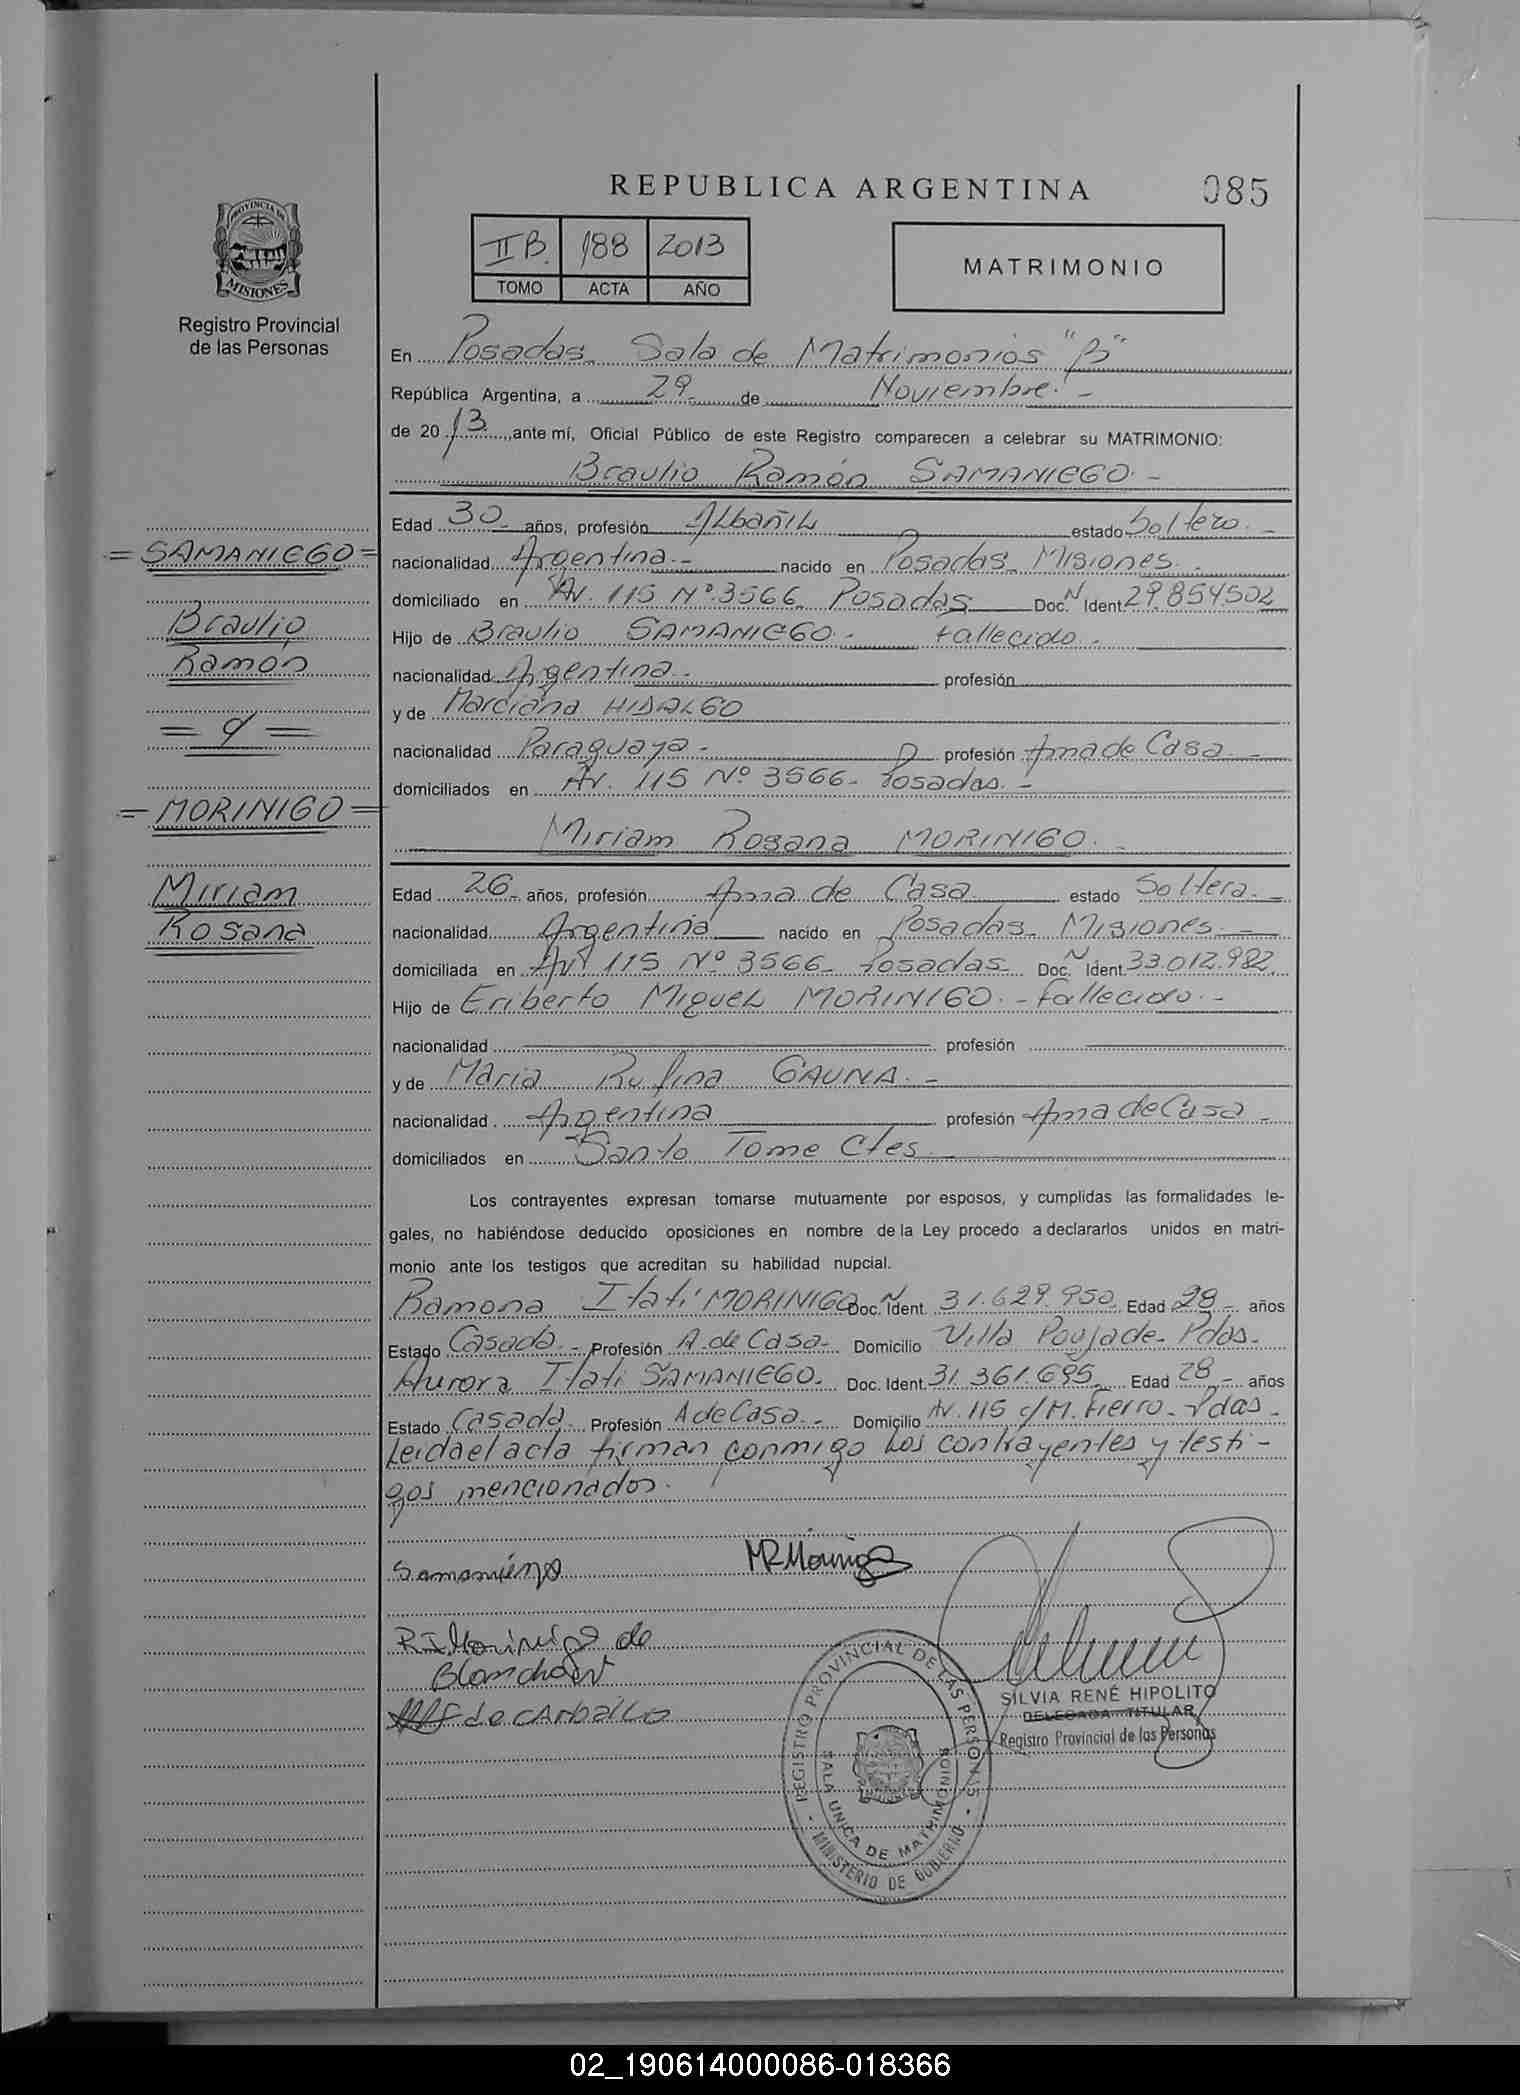 REPUBLICA ARGENTINA
085
PROVINCIA DE
MISIONES
Registro Provincial
de las Personas
II B. 188 2013
TOMO ACTA AÑO
MATRIMONIO
En Posadas - Sala de Matrimonios "B"
República Argentina, a 29 de Noviembre. -
de 2013 ante mí, Oficial Público de este Registro comparecen a celebrar su MATRIMONIO:
Braulio Ramón SAMANIEGO. -
= SAMANIEGO =
Braulio
Ramón
= y =
= MORINIGO =
Miriam
Rosana
Edad 30 - años, profesión Albañil estado Soltero. -
nacionalidad Argentina. - nacido en Posadas - Misiones. -
domiciliado en Av. 115 Nº 3566 Posadas Doc. N Ident. 29.854.502
Hijo de Braulio SAMANIEGO. - Fallecido. -
nacionalidad Argentina. - profesión
y de Marciana HIDALGO
nacionalidad Paraguaya - profesión Ama de Casa. -
domiciliados en Av. 115 Nº 3566 - Posadas. -
Miriam Rosana MORINIGO. -
Edad 26 - años, profesión Ama de Casa estado Soltera. -
nacionalidad Argentina nacido en Posadas - Misiones. -
domiciliada en Av. 115 Nº 3566 - Posadas - Doc. N Ident. 33.012.982
Hijo de Eriberto Miguel MORINIGO. - Fallecido. -
nacionalidad profesión
y de Maria Rufina GAUNA. -
nacionalidad Argentina profesión Ama de Casa -
domiciliados en Santo Tome Ctes.
Los contrayentes expresan tomarse mutuamente por esposos, y cumplidas las formalidades le-
gales, no habiéndose deducido oposiciones en nombre de la Ley procedo a declararlos unidos en matri-
monio ante los testigos que acreditan su habilidad nupcial.
Ramona Itatí MORINIGO Doc. N Ident. 31.629.950 Edad 28 - años
Estado Casada. - Profesión A. de Casa - Domicilio Villa Poujade - Pdas.
Aurora Itati SAMANIEGO - Doc. Ident. 31.361.695 Edad 28 - años
Estado Casada - Profesión A de Casa. - Domicilio Av. 115 c/ M. Fierro - Pdas -
Leida el acta firman conmigo los contrayentes y testi-
gos mencionados.
Samaniego
MRMorinigo
R I Morinigo de
Blanchart
de CArbaLLo
SILVIA RENÉ HIPOLITO
DELEGADA TITULAR
Registro Provincial de las Personas
REGISTRO PROVINCIAL DE LAS PERSONAS
SALA UNICA DE MATRIMONIOS
- MINISTERIO DE GOBIERNO -
02_190614000086-018366